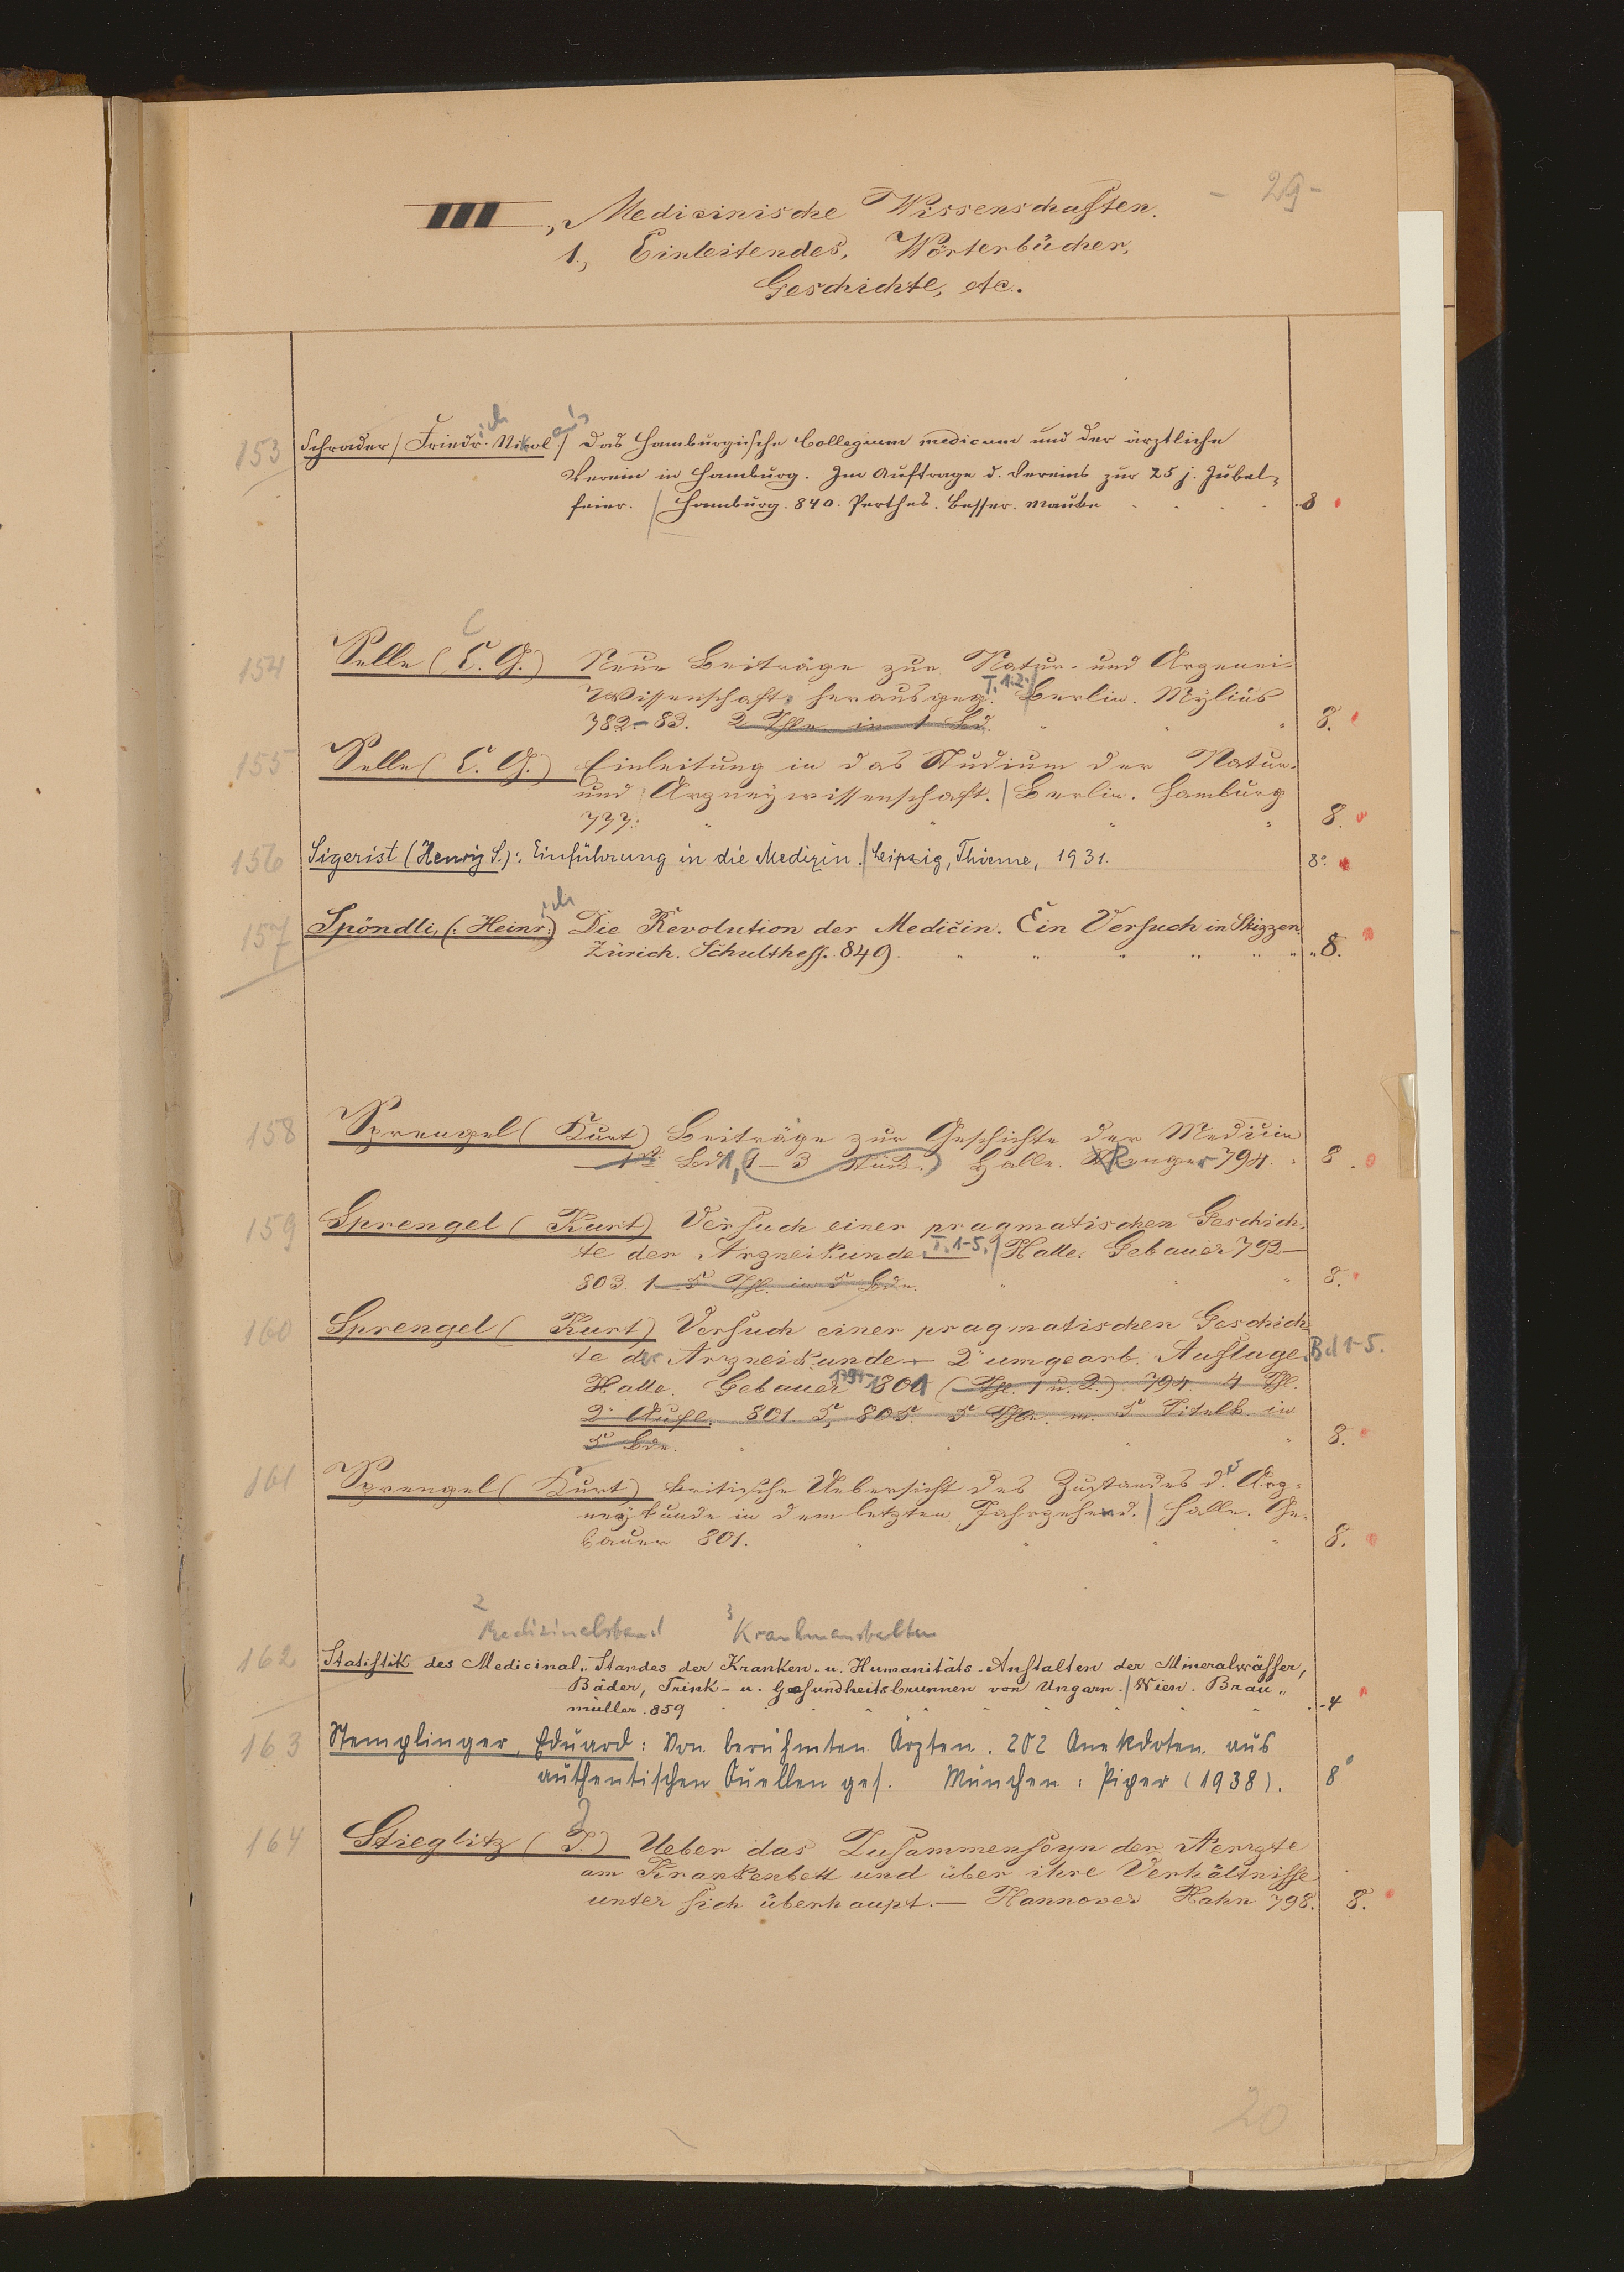 - 29 -
III., Medicinische Wissenschaften.
1., Einleitendes, Wörterbücher,
Geschichte, etc.
153 Schrader (Friedrich Nikolaus) Das Hamburgische Collegium medicum und der ärztliche
Verein in Hamburg. Im Auftrage d. Vereins zur 25 j. Jubel-
feier. / Hamburg. 840. Perthes. Besser. Mauke 8
154 Selle (C. G.) Neue Beiträge zur Natur- und Arzenei-
Wissenschaft, herausgeg. T. 1.2. / Berlin. Mylius
782-83. 2 Thle in 1 Bd. 8.
155 Selle (C. G.) Einleitung in das Studium der Natur-
und Arzneywissenschaft. / Berlin. Hamburg
777. 8.
156 Sigerist (Henry S.): Einführung in die Medizin. / Leipzig, Thieme, 1931. 8°.
157 Spöndli, (: Heinrich:) Die Revolution der Medicin. Ein Versuch in Skizzen
Zürich. Schulthess. 849. 8.
158 Sprengel (Kurt) Beiträge zur Geschichte der Medicin
1r Bd 1, (1-3 Stück.) Halle. Renger 794. 8.
159 Sprengel (Kurt) Versuch einer pragmatischen Geschich-
te der Arzneikunde T. 1-5. / Halle. Gebauer 792-
803. 1-5 Thl. in 5 Bdn. 8.
160 Sprengel (Kurt) Versuch einer pragmatischen Geschich-
te der Arzneikunde - 2e umgearb. Auflage. Bd 1-5.
Halle. Gebauer 1801 (Thl. 1 u. 2.) 794. 4 Thl.
2e Aufl. 801. 5, 805. 5 Thle. m. 5 Titelk. in
5 Bdn. 8.
161 Sprengel (Kurt) kritische Uebersicht des Zustandes dr. Arz-
neykunde in dem letzten Jahrzehend. / Halle. Ge-
bauer 801. 8.
2 Medizinalstand 3 Krankenanstalten
162 Statistik des Medicinal-Standes der Kranken- u. Humanitäts-Anstalten der Mineralwässer,
Bäder, Trink- u. Gesundheitsbrunnen von Ungarn. / Wien. Brau-
müller. 859 4
163 Stemplinger, Eduard: Von berühmten Ärzten. 202 Anekdoten aus
authentischen Quellen ges. München: Piper (1938). 8°
164 Stieglitz (J.) Ueber das Zusammenseyn der Aerzte
am Krankenbett und über ihre Verhältnisse
unter sich überhaupt. — Hannover Hahn 798. 8.
20